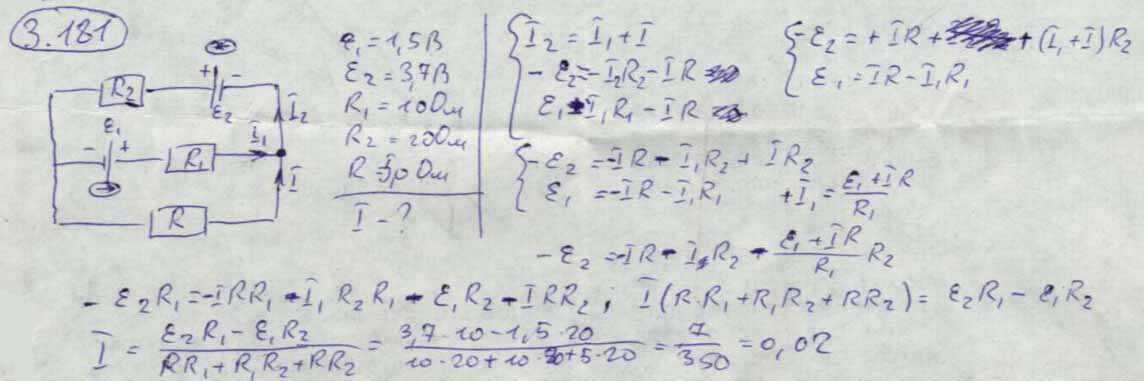 3.181
R₂ + - ε₂ I₂
ε₁ - + R₁ I₁
R I
ε₁ = 1,5 В
ε₂ = 3,7 В
R₁ = 10 Ом
R₂ = 20 Ом
R = 5,0 Ом
I - ?
I₂ = I₁ + I
- ε₂ = - I₂R₂ - IR
ε₁ I₁R₁ - IR
- ε₂ = + IR + + (I₁ + I) R₂
ε₁ = IR - I₁R₁
- ε₂ = - IR - I₁R₂ + IR₂
ε₁ = - IR - I₁R₁ + I₁ = (ε₁ + IR) / R₁
- ε₂ = - IR - I₁R₂ - (ε₁ + IR) / R₁ R₂
- ε₂R₁ = - IRR₁ - I₁R₂R₁ - ε₁R₂ - IRR₂ ; I (R·R₁ + R₁R₂ + RR₂) = ε₂R₁ - ε₁R₂
I = (ε₂R₁ - ε₁R₂) / (RR₁ + R₁R₂ + RR₂) = (3,7·10 - 1,5·20) / (10·20 + 10·20 + 5·20) = 7 / 350 = 0,02